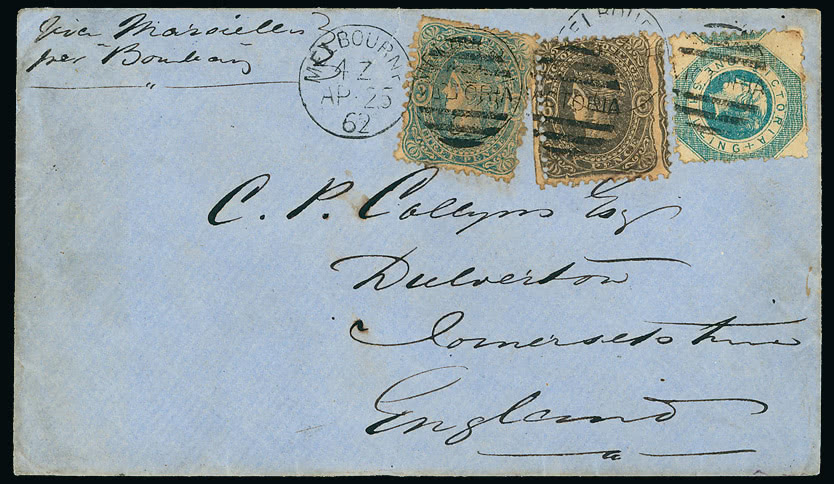 via Marseilles
per "Bombay"
MELBOURNE
4 Z
AP 25
62
VICTORIA
TORIA
ELBOURNE
VICTORIA
ONE SHILLING
C. P. Collyns Esq
Dulverton
Somersetshire
England